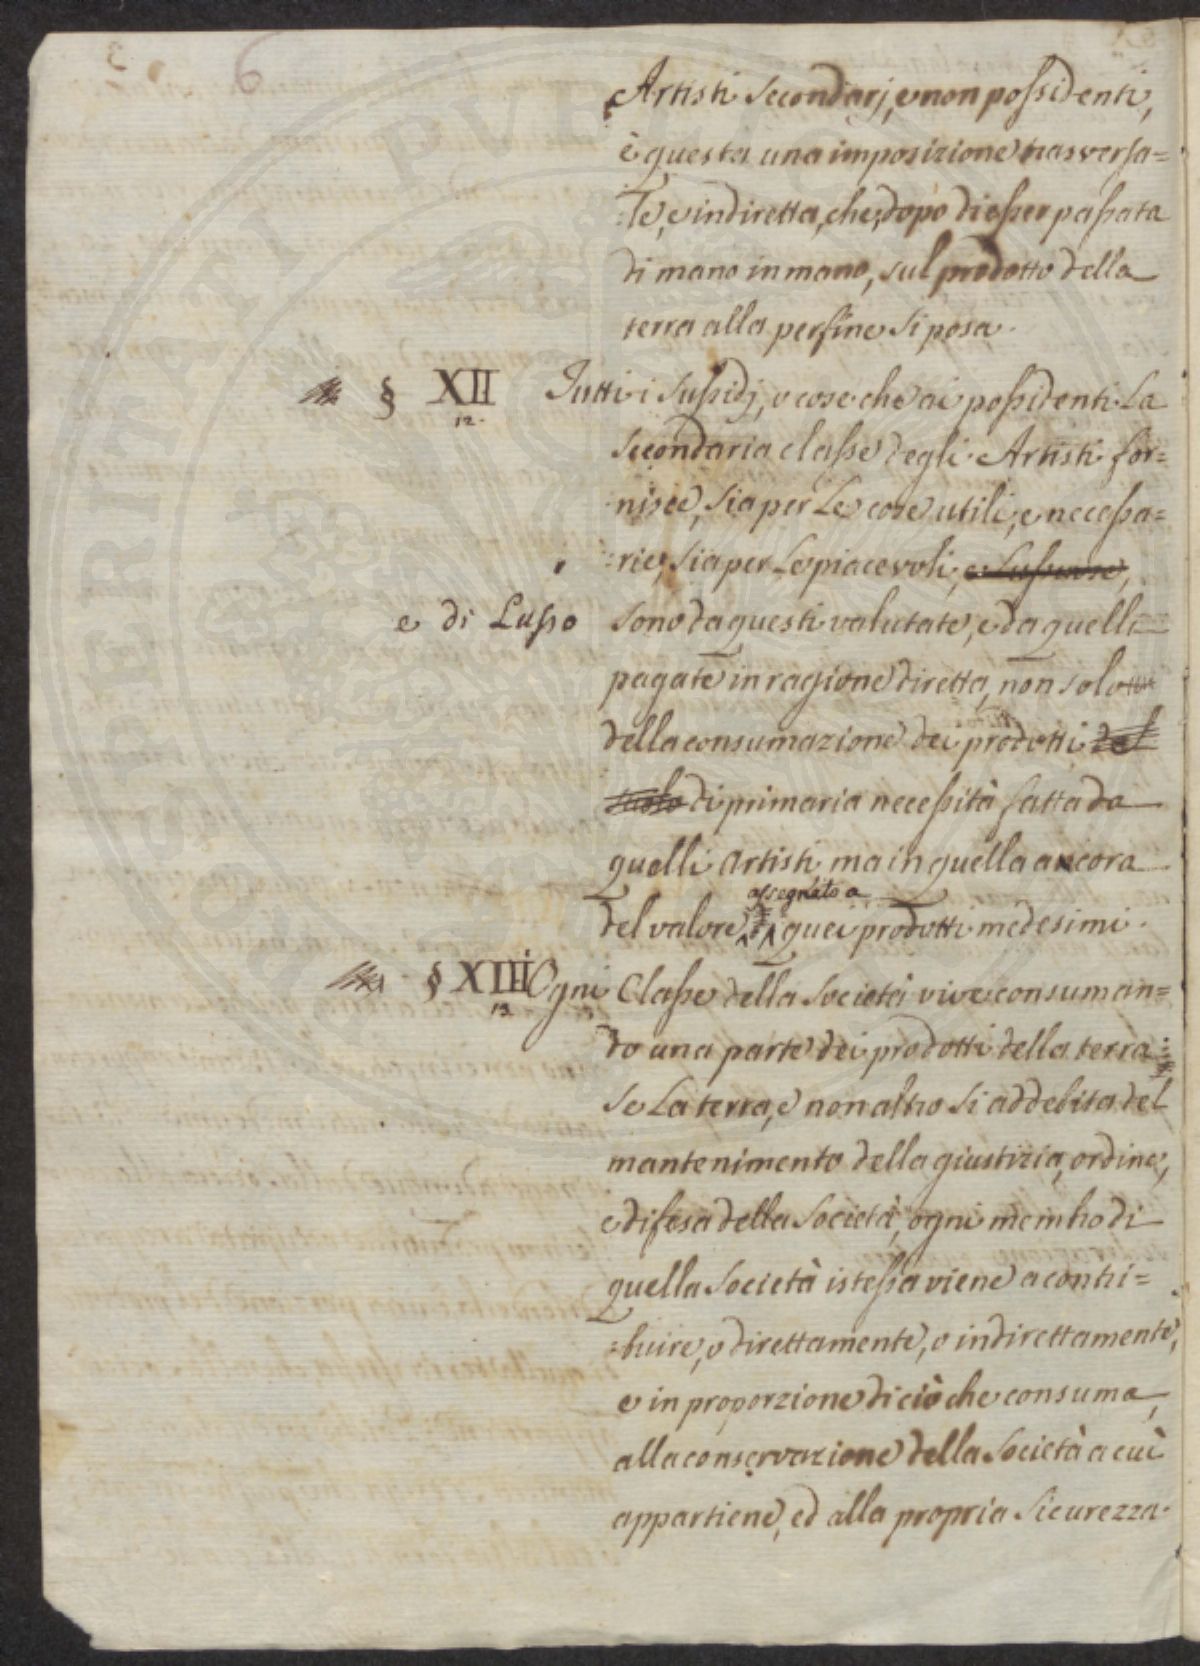 6
Artisti Secondarj, e non possidenti,
è questa una imposizione trasversa=
:le, e indiretta, che, dopo di esser passata
di mano in mano, sul prodotto della
terra alla perfine si posa.
§ XII Tutti i Sussidj, o cose che ai possidenti La
12.
Secondaria classe degli Artisti for=
nisce, sia per Le cose utili, e necessa=
:rie, sia per Le piacevoli, e Lussuose,
e di Lusso sono da questi valutate, e da quelli
pagate in ragione diretta, non solo
della consumazione dei prodotti del
suolo di primaria necessità fatta da
quelli Artisti, ma in quella ancora
assegnato a
del valore quei prodotti medesimi.
§ XIII Ogni Classe della Società vive consuman=
13
do una parte dei prodotti della terra:
Se La terra, e non altro si addebita del
mantenimento della giustizia, ordine,
e difesa della Società, ogni membro di
quella Società istessa viene a contri=
:buire, o direttamente, o indirettamente,
e in proporzione di ciò che consuma,
alla conservazione della Società a cui
appartiene, ed alla propria Sicurezza.